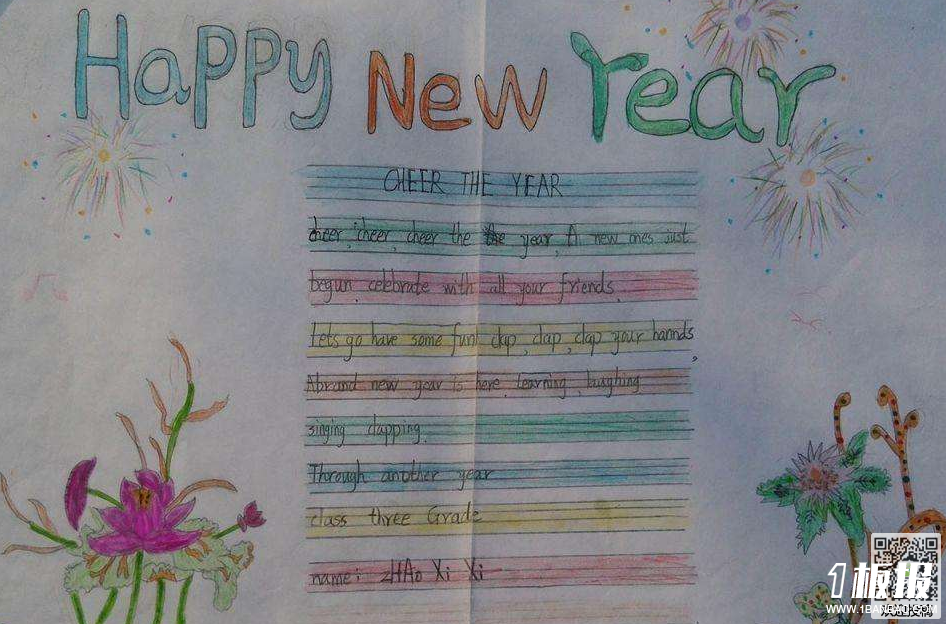 Happy New Year
CHEER THE YEAR
cheer, cheer, cheer the the year, A new ones just
begun, celebrate with all your friends,
Lets go have some fun! clap, clap, clap your hannds,
Abrannd new year is here, learning, laughing
singing clapping,
Through another year
class three Grade
name: ZHAO Xi Xi
1板报
WWW.1BANBAO.COM